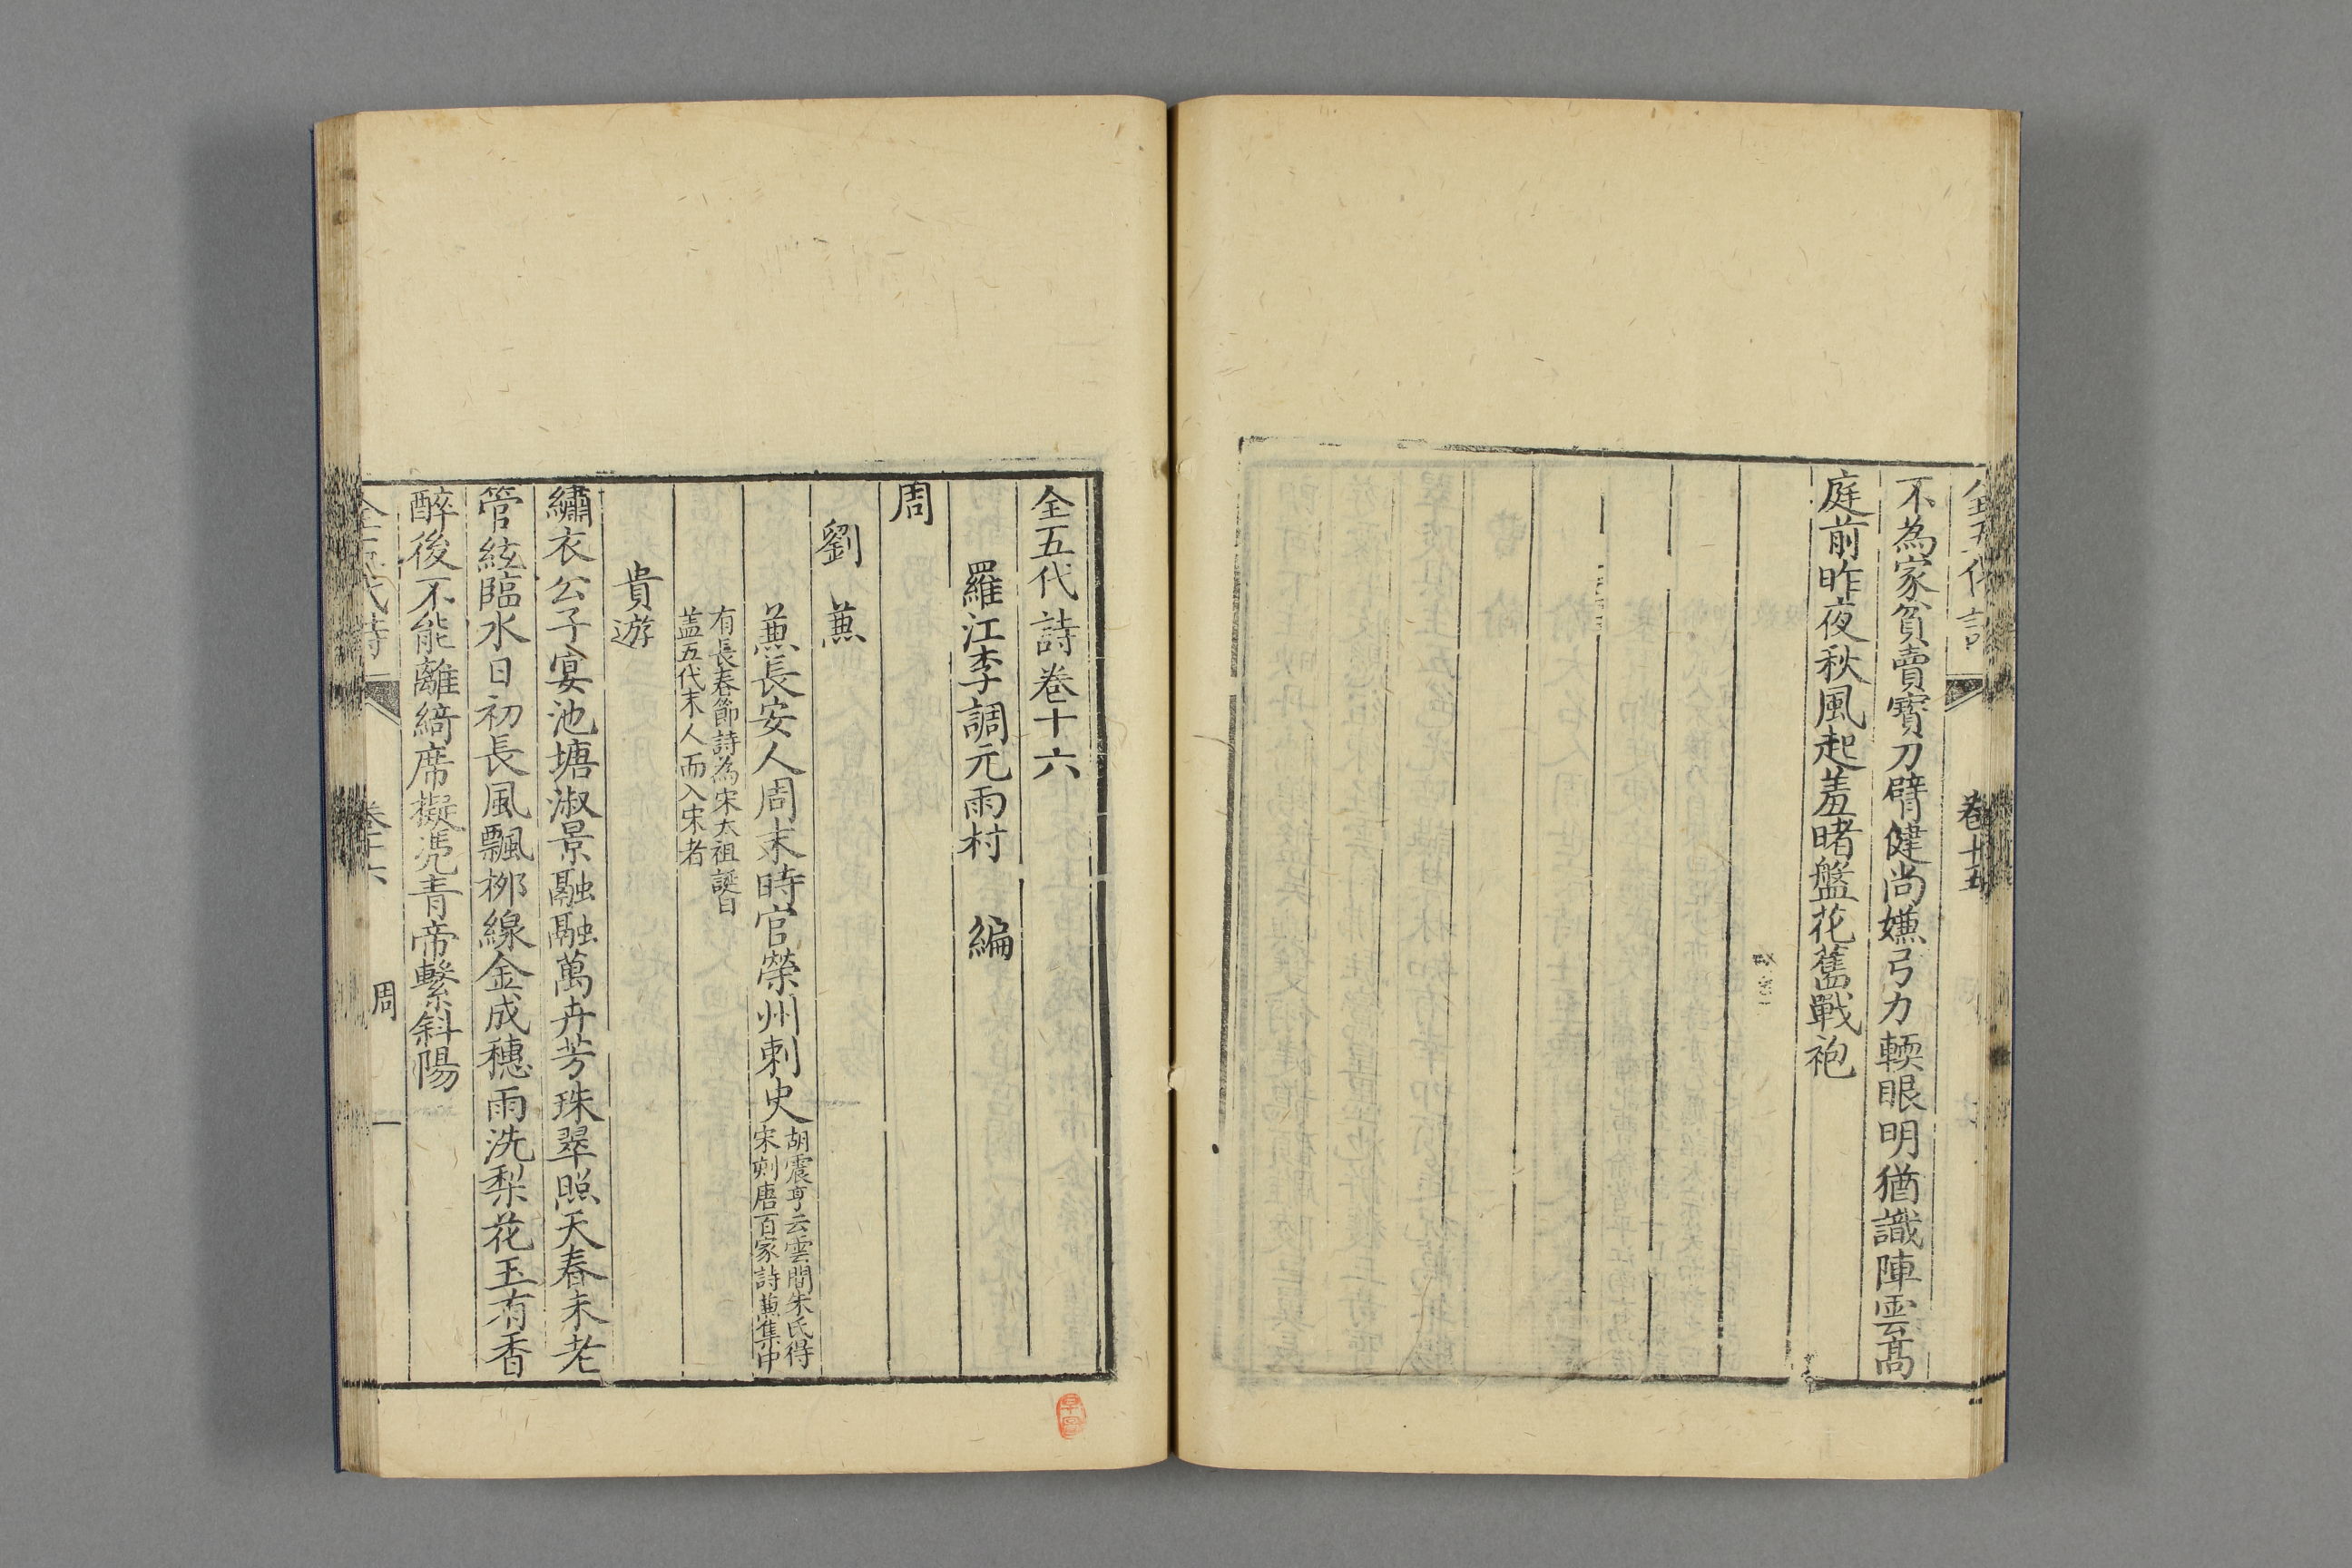 不為家貧賣寳刀臂健尚嫌弓力輭眼明猶識陣雲髙
庭前昨夜秋風起羞睹盤花舊戰袍
卷十五
全五代詩卷十六
羅江李調元雨村 編
周
劉 蒹
蒹長安人周末時官榮州刺史胡震亨云雲間朱氏得
宋刻唐百家詩蒹集中
有長春節詩為宋太祖誕日
蓋五代末人而入宋者
貴遊
繡衣公子宴池塘淑景融融萬卉芳珠翠照天春未老
管絃臨水日初長風飄栁線金成穗雨洗梨花玉有香
醉後不能離綺席擬凴青帝繫斜陽
周
一